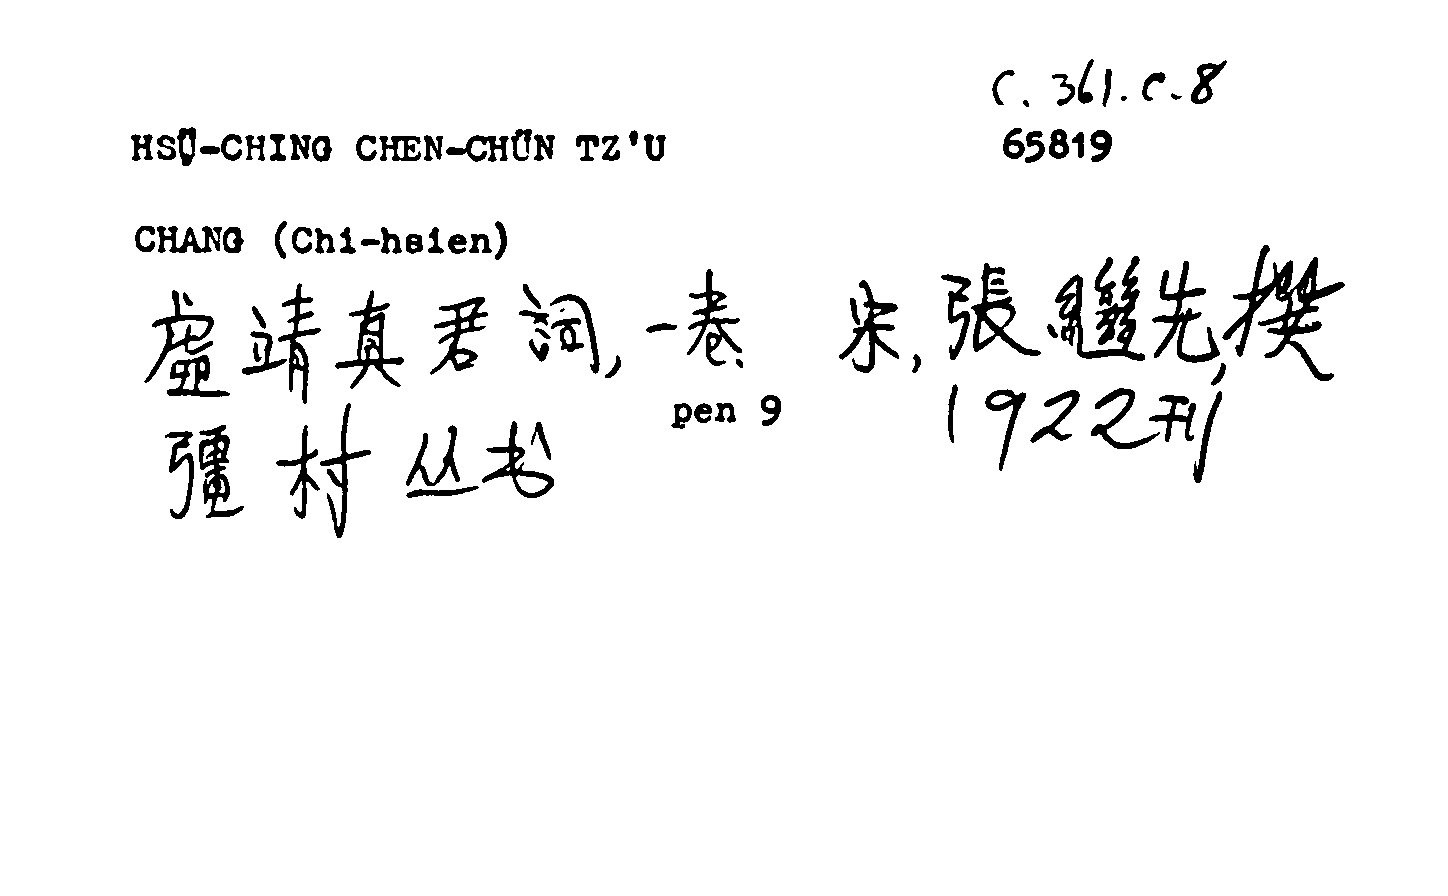 C. 361. C. 8
HSÜ-CHING CHEN-CHÜN TZ'U 65819
CHANG (Chi-hsien)
虛靖真君詞, 一卷. 宋, 張繼先, 撰
pen 9 1922刊
彊村丛书